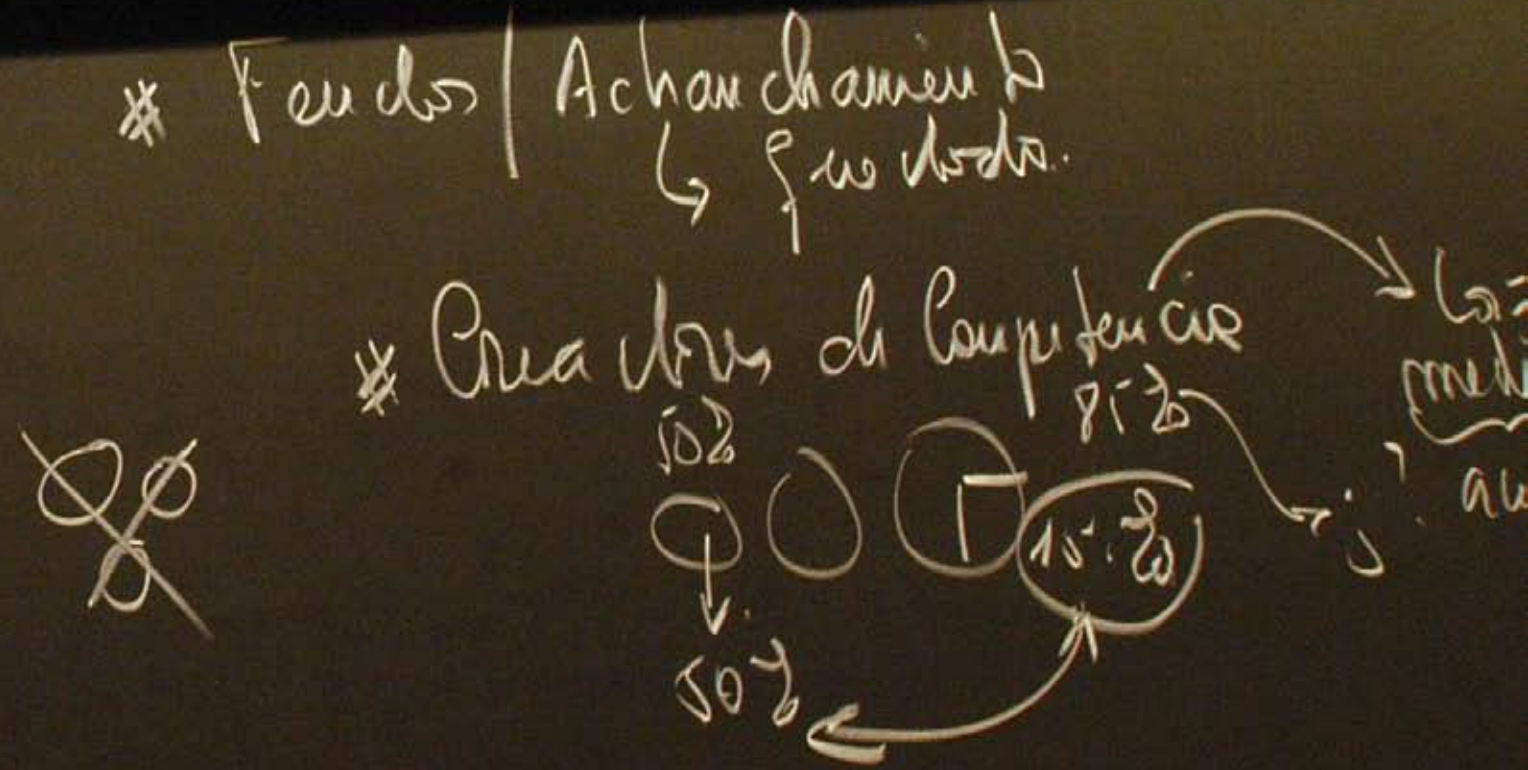 # Feudos / Achanchamiento
# Creadores de Competencia
50%
85%
15%
50%